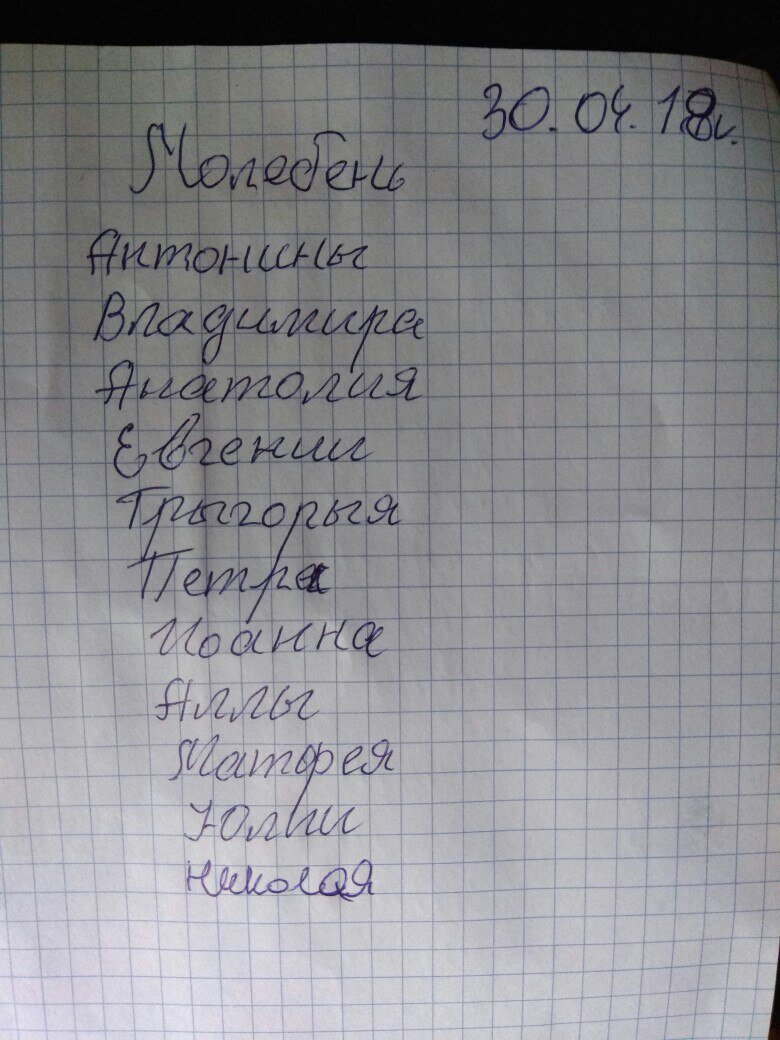 30.04.18г.
Молебень
Антонины
Владимира
Анатолия
Евгении
Грыгорыя
Петра
Иоанна
Аллы
Матфея
Юлии
Николая